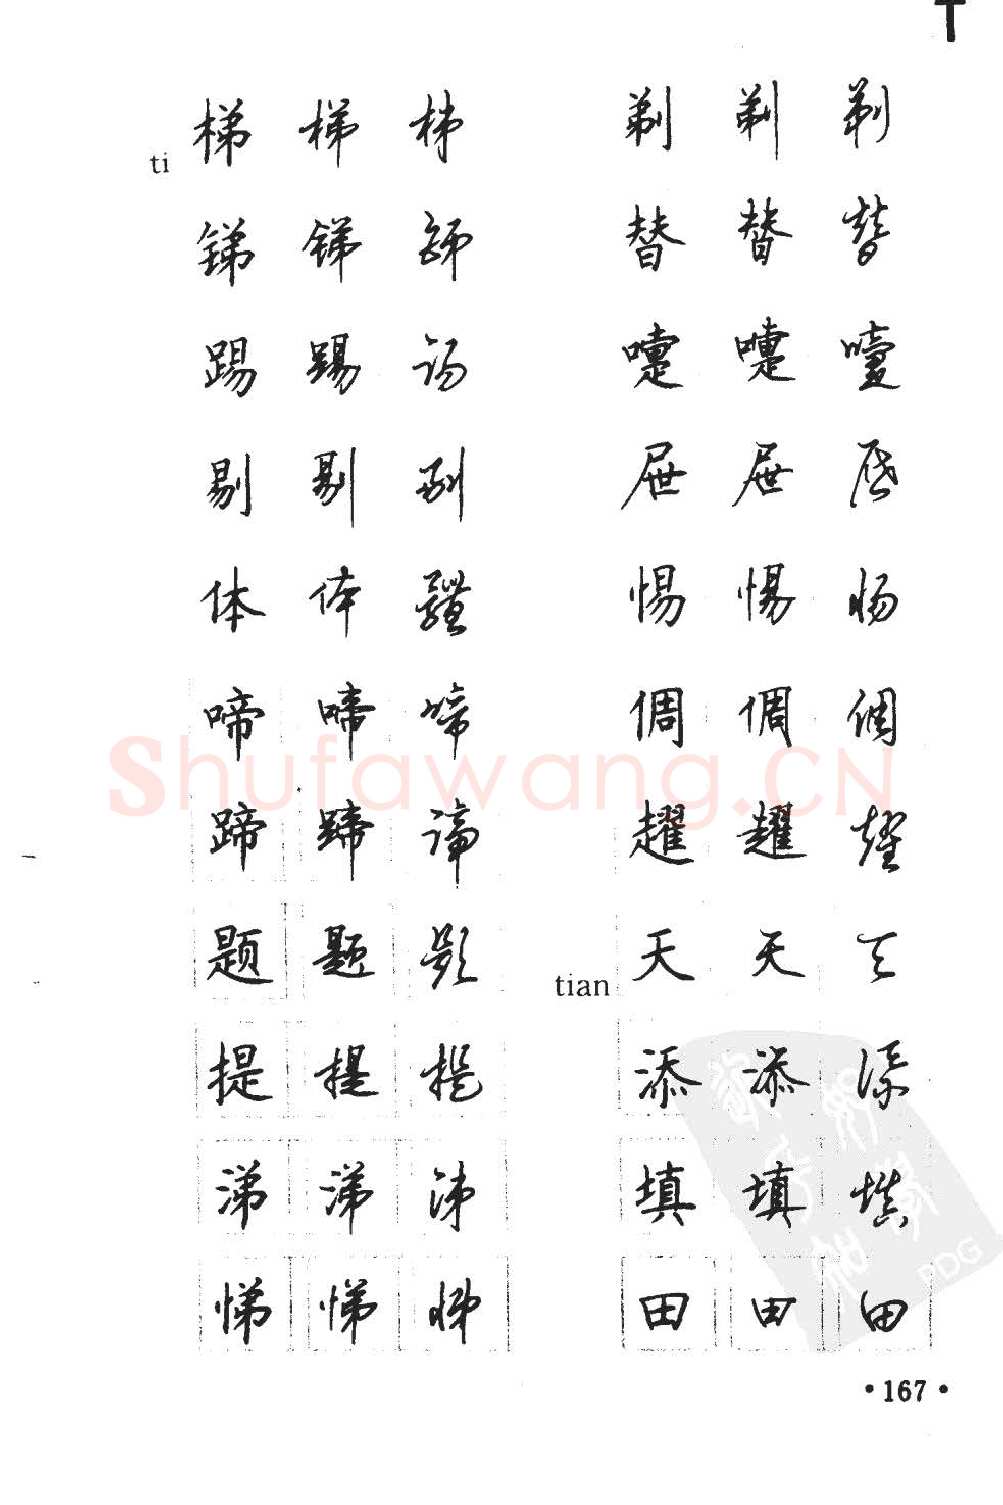 T
ti
梯 梯 梯
锑 锑 锑
踢 踢 踢
剔 剔 剔
体 体 體
啼 啼 啼
蹄 蹄 蹄
题 题 题
提 提 提
涕 涕 涕
悌 悌 悌
剃 剃 剃
替 替 替
嚏 嚏 嚏
屉 屉 屉
惕 惕 惕
倜 倜 倜
趯 趯 趯
tian
天 天 天
添 添 添
填 填 填
田 田 田
Shufawang.CN
PDG
·167·